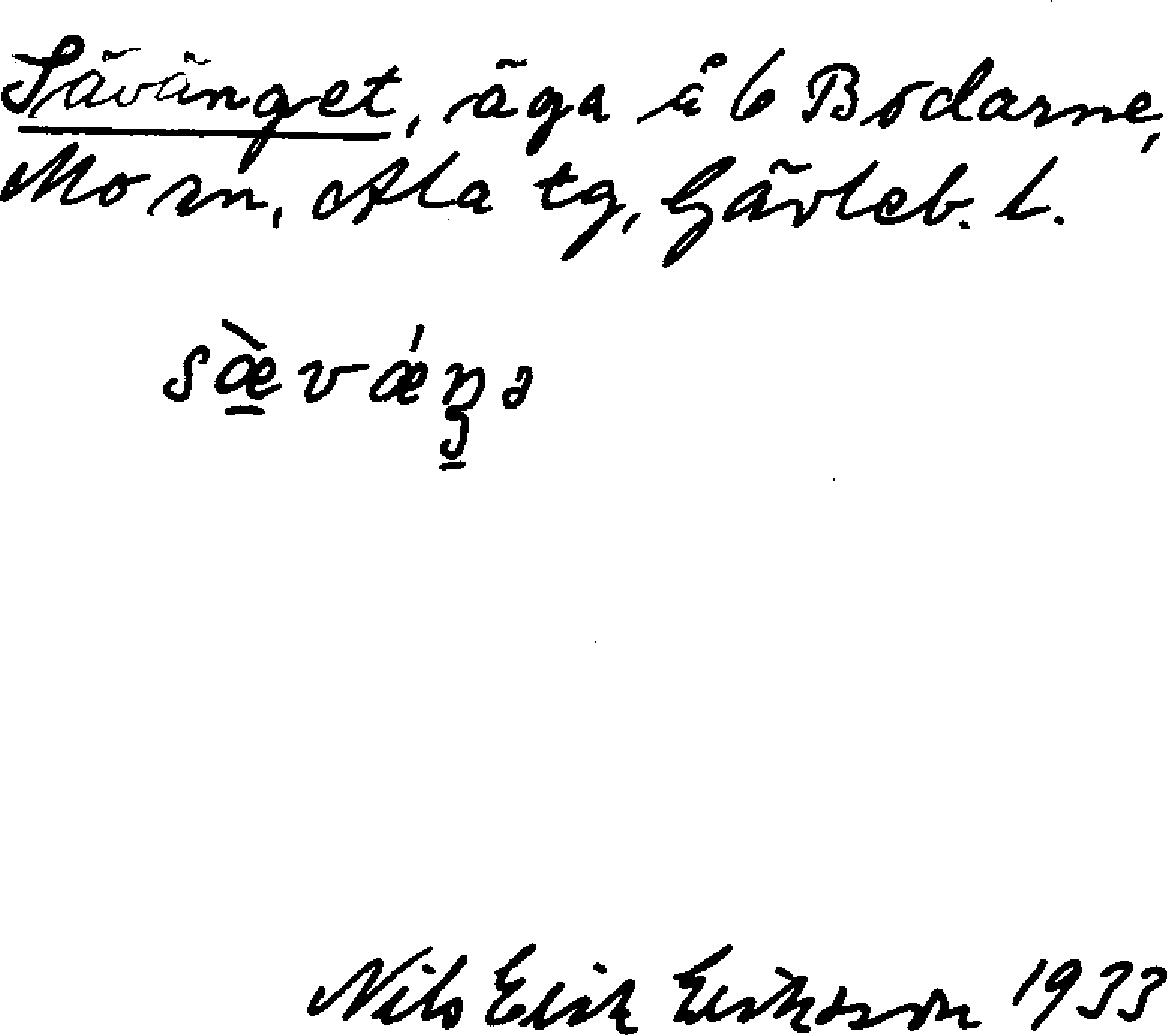 Sävänget, äga å 6 Bodarne,
Mo sn, Ala tg, Gävleb. l.
sæ̀vǽŋə
Nils Erik Eriksson 1933